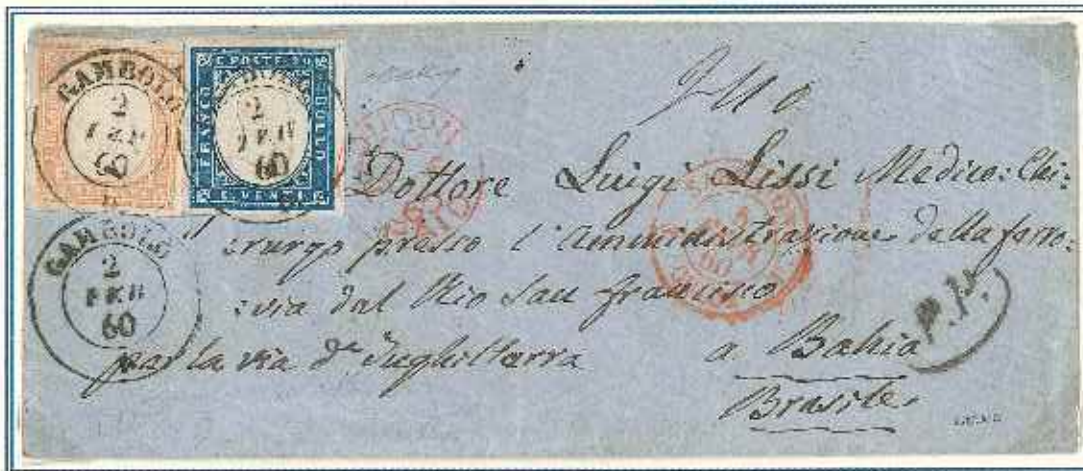 GAMBOLO
2
FEB
60
C. POSTE 20
FRANCO
BOLLO
C. VENTI
2
FEB
60
GAMBOLO
2
FEB
60
Dottore Luigi Lissi Medico=Chi=
=rurgo presso l'amministrazione della ferro=
=via dal Rio San Francisco
per la via d'Inghilterra a Bahia
Brasile